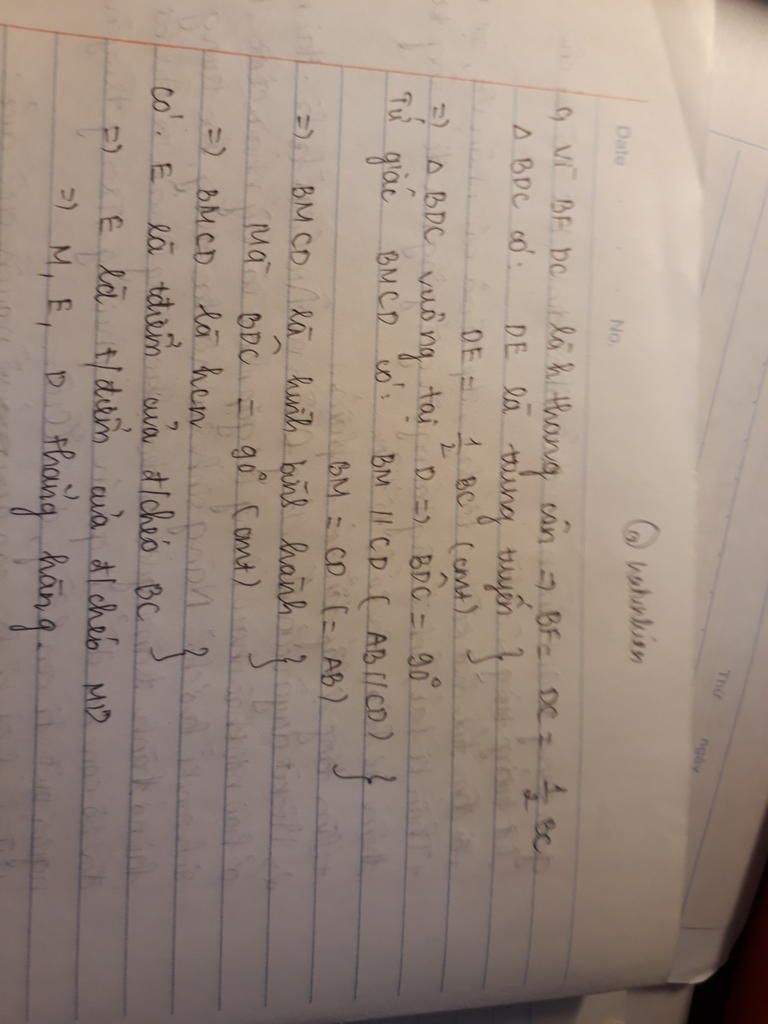 Thứ ngày
Date No.
@ vietorbien
c, Vì BFDC là h thang cân => BF = DC = 1/2 BC
Δ BDC có: DE là trung tuyến }
DE = 1/2 BC (cmt) }
=> Δ BDC vuông tại D => BDC = 90°
Tứ giác BMCD có: BM // CD (AB // CD) }
BM = CD (= AB) }
=> BMCD là hình bình hành }
Mà BDC = 90° (cmt) }
=> BMCD là hcn }
có: E là tđiểm của đ/chéo BC }
=> E là t/điểm của đ/chéo MD
=> M, E, D thẳng hàng.